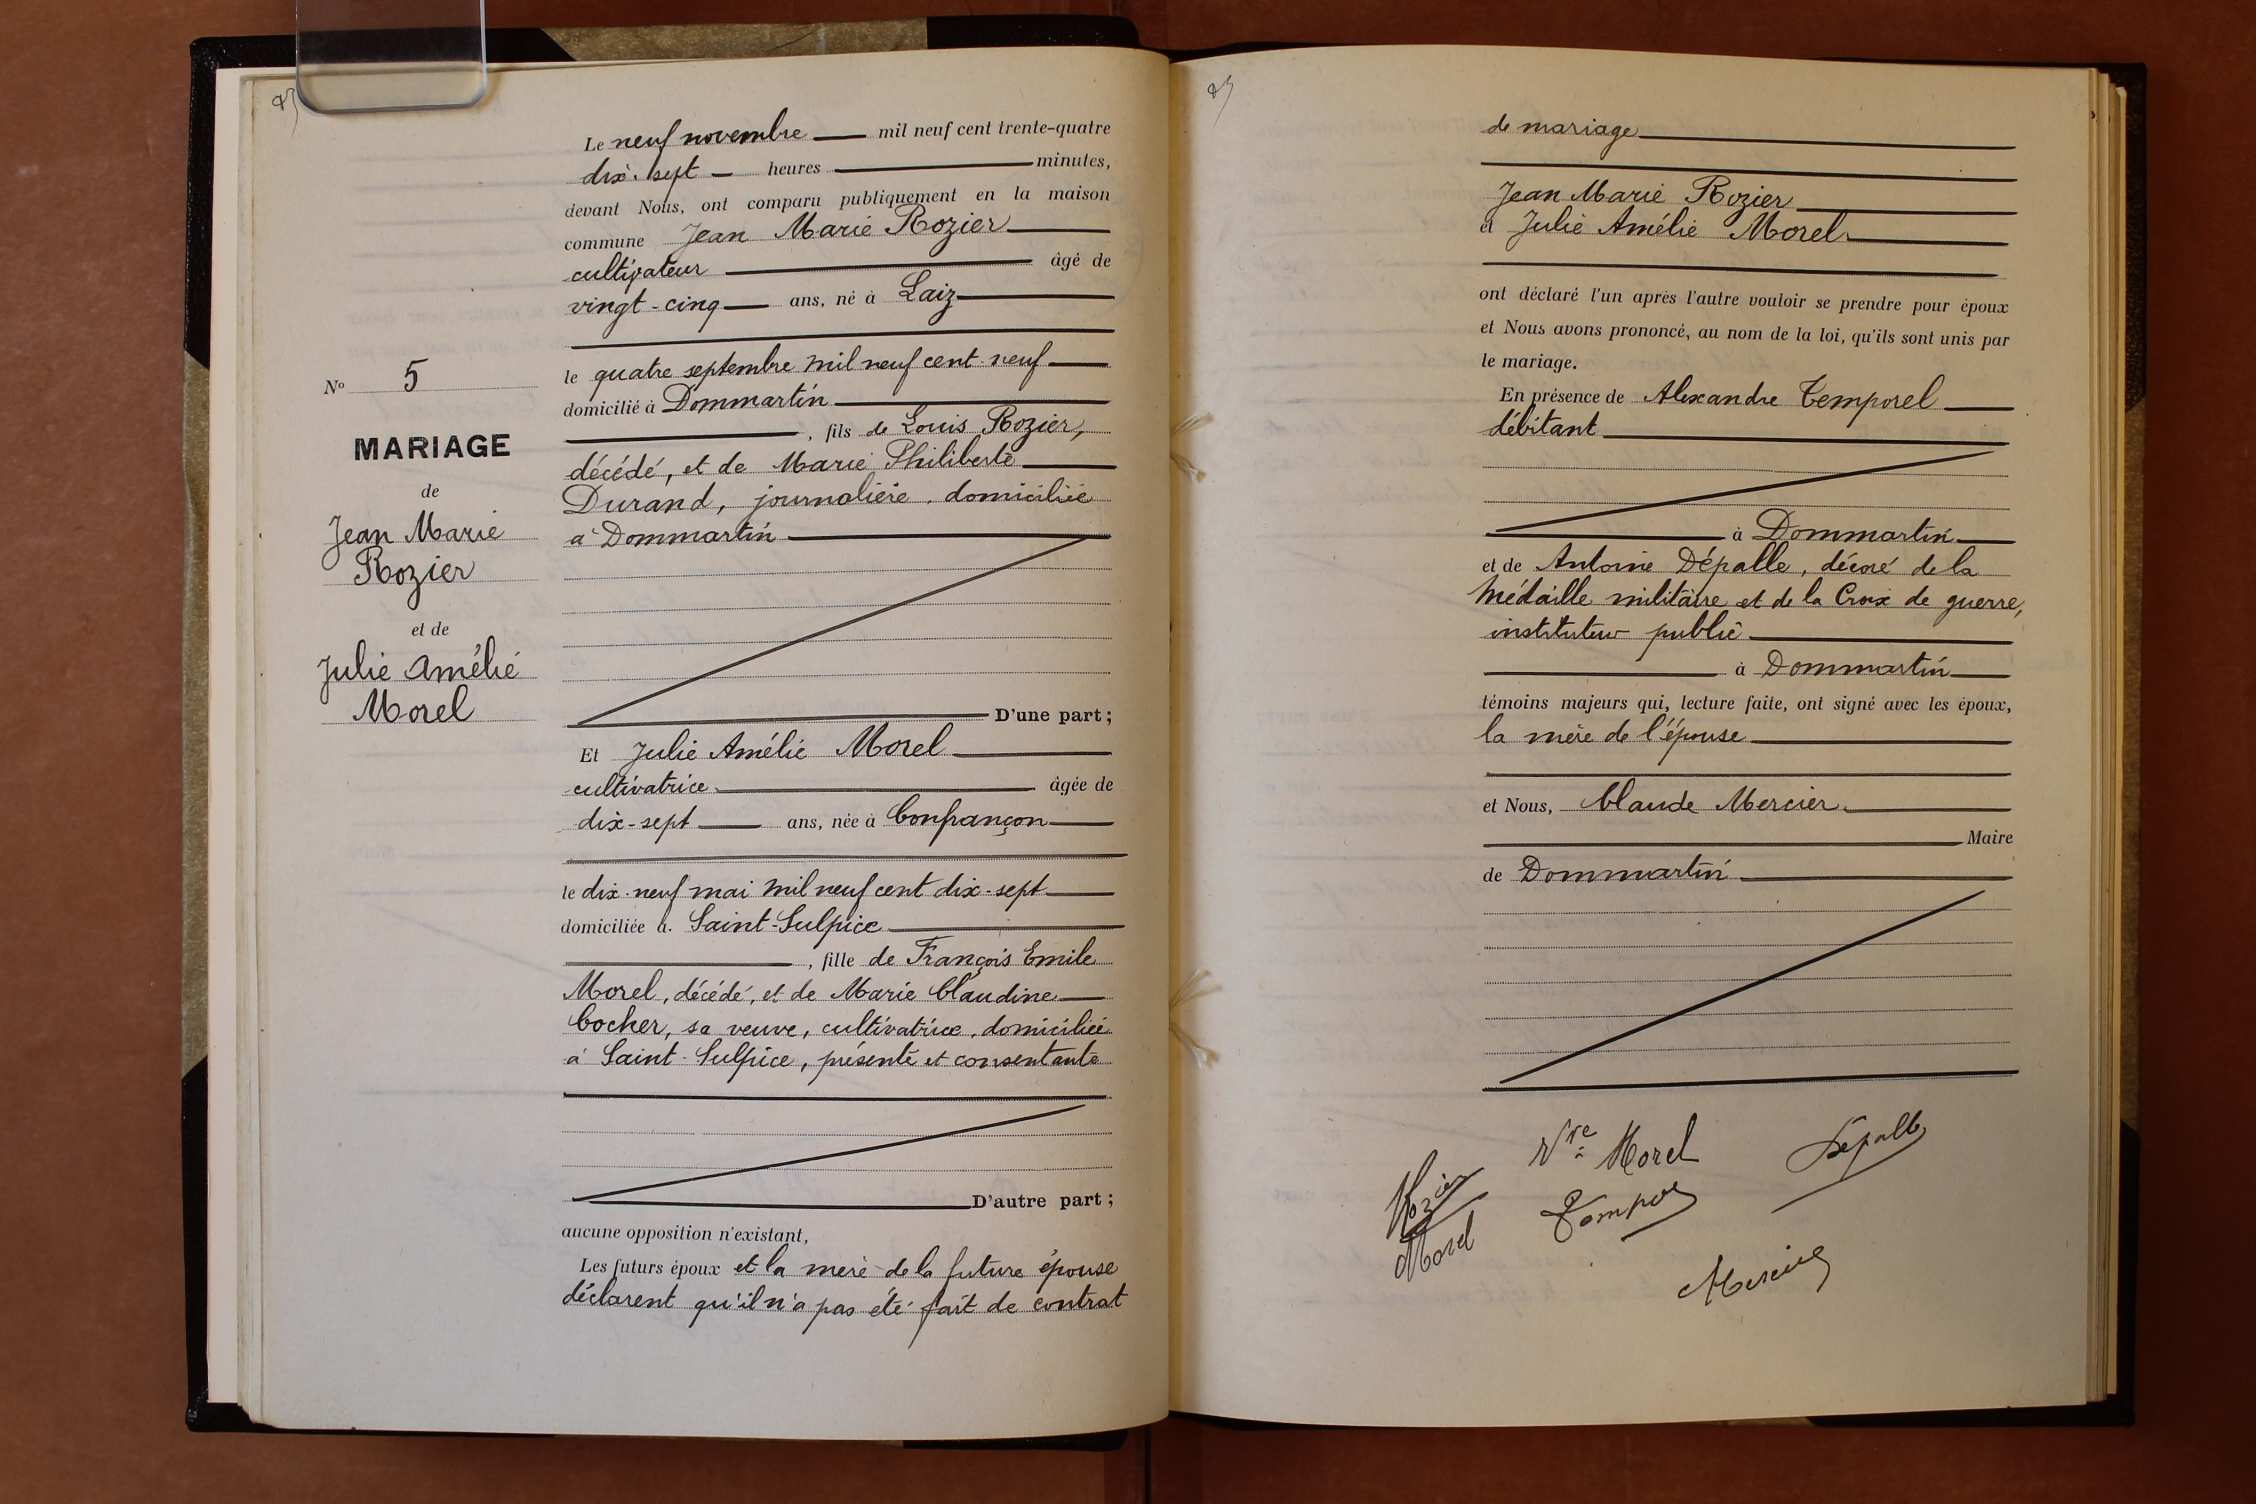 N° 5
MARIAGE
de
Jean Marie
Rozier
et de
Julie Amélie
Morel
Le neuf novembre mil neuf cent trente-quatre
dix-sept heures minutes,
devant Nous, ont comparu publiquement en la maison
commune Jean Marie Rozier
cultivateur âgé de
vingt-cinq ans, né à Laiz
le quatre septembre mil neuf cent neuf
domicilié à Dommartin
, fils de Louis Rozier,
décédé, et de Marie Philiberte
Durand, journalière, domiciliée
à Dommartin
D'une part;
Et Julie Amélie Morel
cultivatrice âgée de
dix-sept ans, née à Confrançon
le dix-neuf mai mil neuf cent dix-sept
domiciliée à Saint-Sulpice
, fille de François Emile
Morel, décédé, et de Marie Claudine
Cocher, sa veuve, cultivatrice, domiciliée
à Saint-Sulpice, présente et consentante
D'autre part;
aucune opposition n'existant,
Les futurs époux et la mère de la future épouse
déclarent qu'il n'a pas été fait de contrat
de mariage
Jean Marie Rozier
et Julie Amélie Morel
ont déclaré l'un après l'autre vouloir se prendre pour époux
et Nous avons prononcé, au nom de la loi, qu'ils sont unis par
le mariage.
En présence de Alexandre Temporel
débitant
à Dommartin
et de Antoine Dépalle, décoré de la
Médaille militaire et de la Croix de guerre,
instituteur public
à Dommartin
témoins majeurs qui, lecture faite, ont signé avec les époux,
la mère de l'épouse
et Nous, Claude Mercier
Maire
de Dommartin
Vve Morel
Dépalle
Rozier
Morel
Mercier